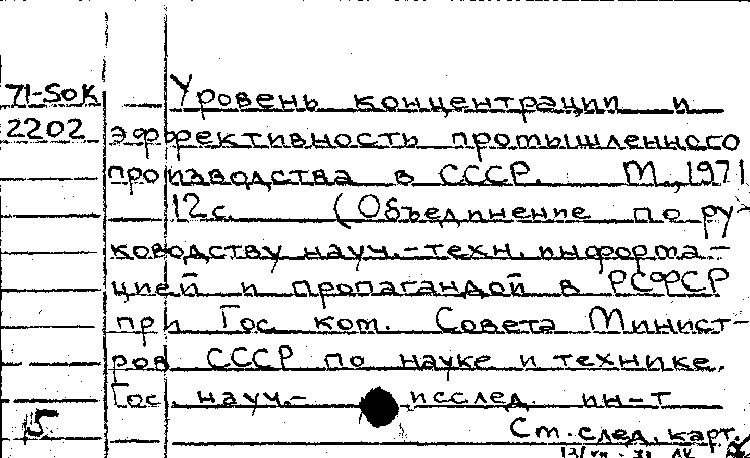 71-SOK Уровень концентрации и
2202 эффективность промышленного
производства в СССР. М., 1971
12 с. (Объединение по ру-
ководству науч.-техн. информа-
цией и пропагандой в РСФСР
при Гос. ком. Совета Минист-
ров СССР по науке и технике.
Гос. науч.- исслед. ин-т
5 См. след. карт.